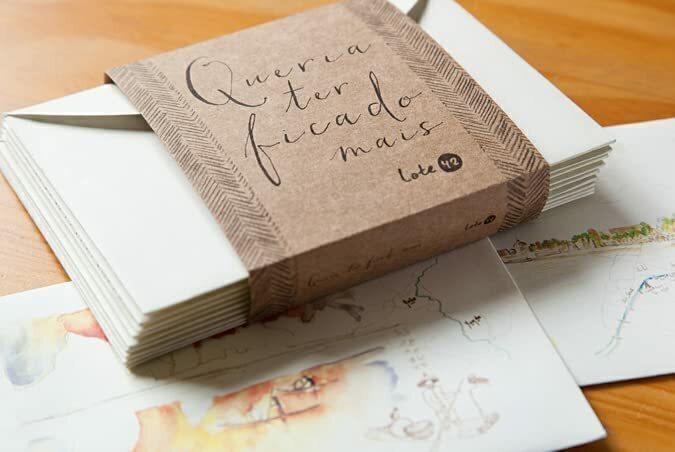 Queria
ter
ficado
mais
Lote 42
Queria ter ficado mais
Lote 42